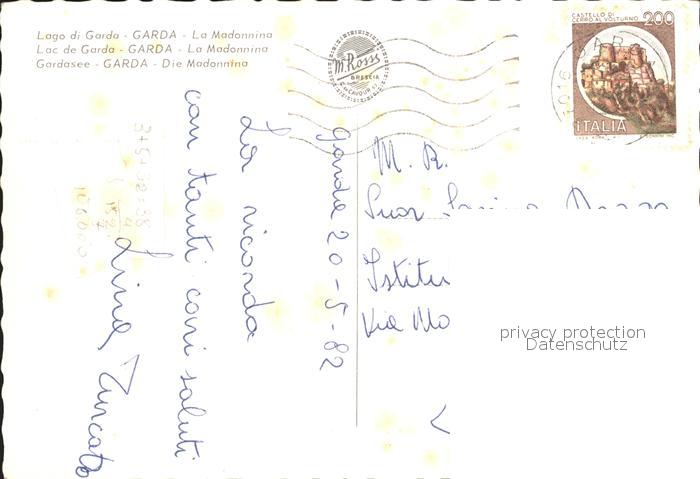 Lago di Garda - GARDA - La Madonnina
Lac de Garda - GARDA - La Madonnina
Gardasee - GARDA - Die Madonnina
M. Rossi
BRESCIA
CASTELLO DI
CERRO AL VOLTURNO
200
ITALIA
Garda 20-5-82
La ricorda
con tanti cari saluti
Lina Turcato
M. R.
Suor
Istitu
Via Mo
V
privacy protection
Datenschutz